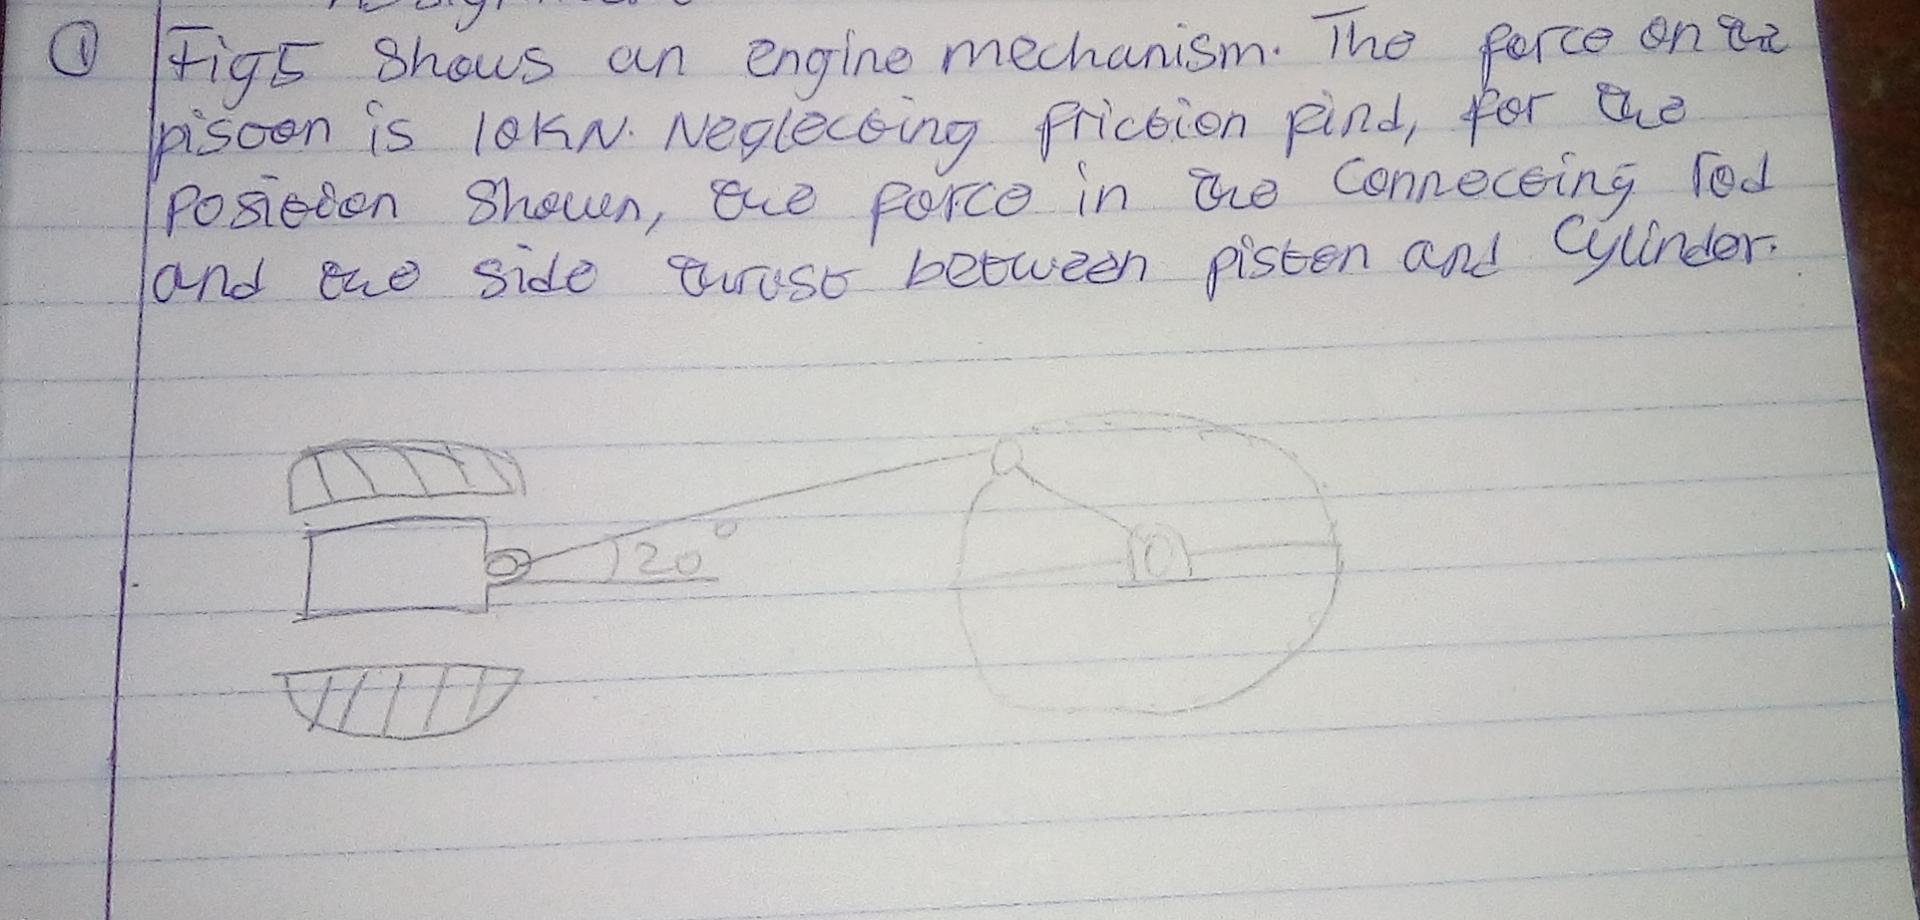 ① Fig5 Shows an engine mechanism. The force on the
pisoon is 10KN. Neglecting friction find, for the
Position Shown, the force in the Connecting rod
and the side thrust between piston and Cylinder.
20°